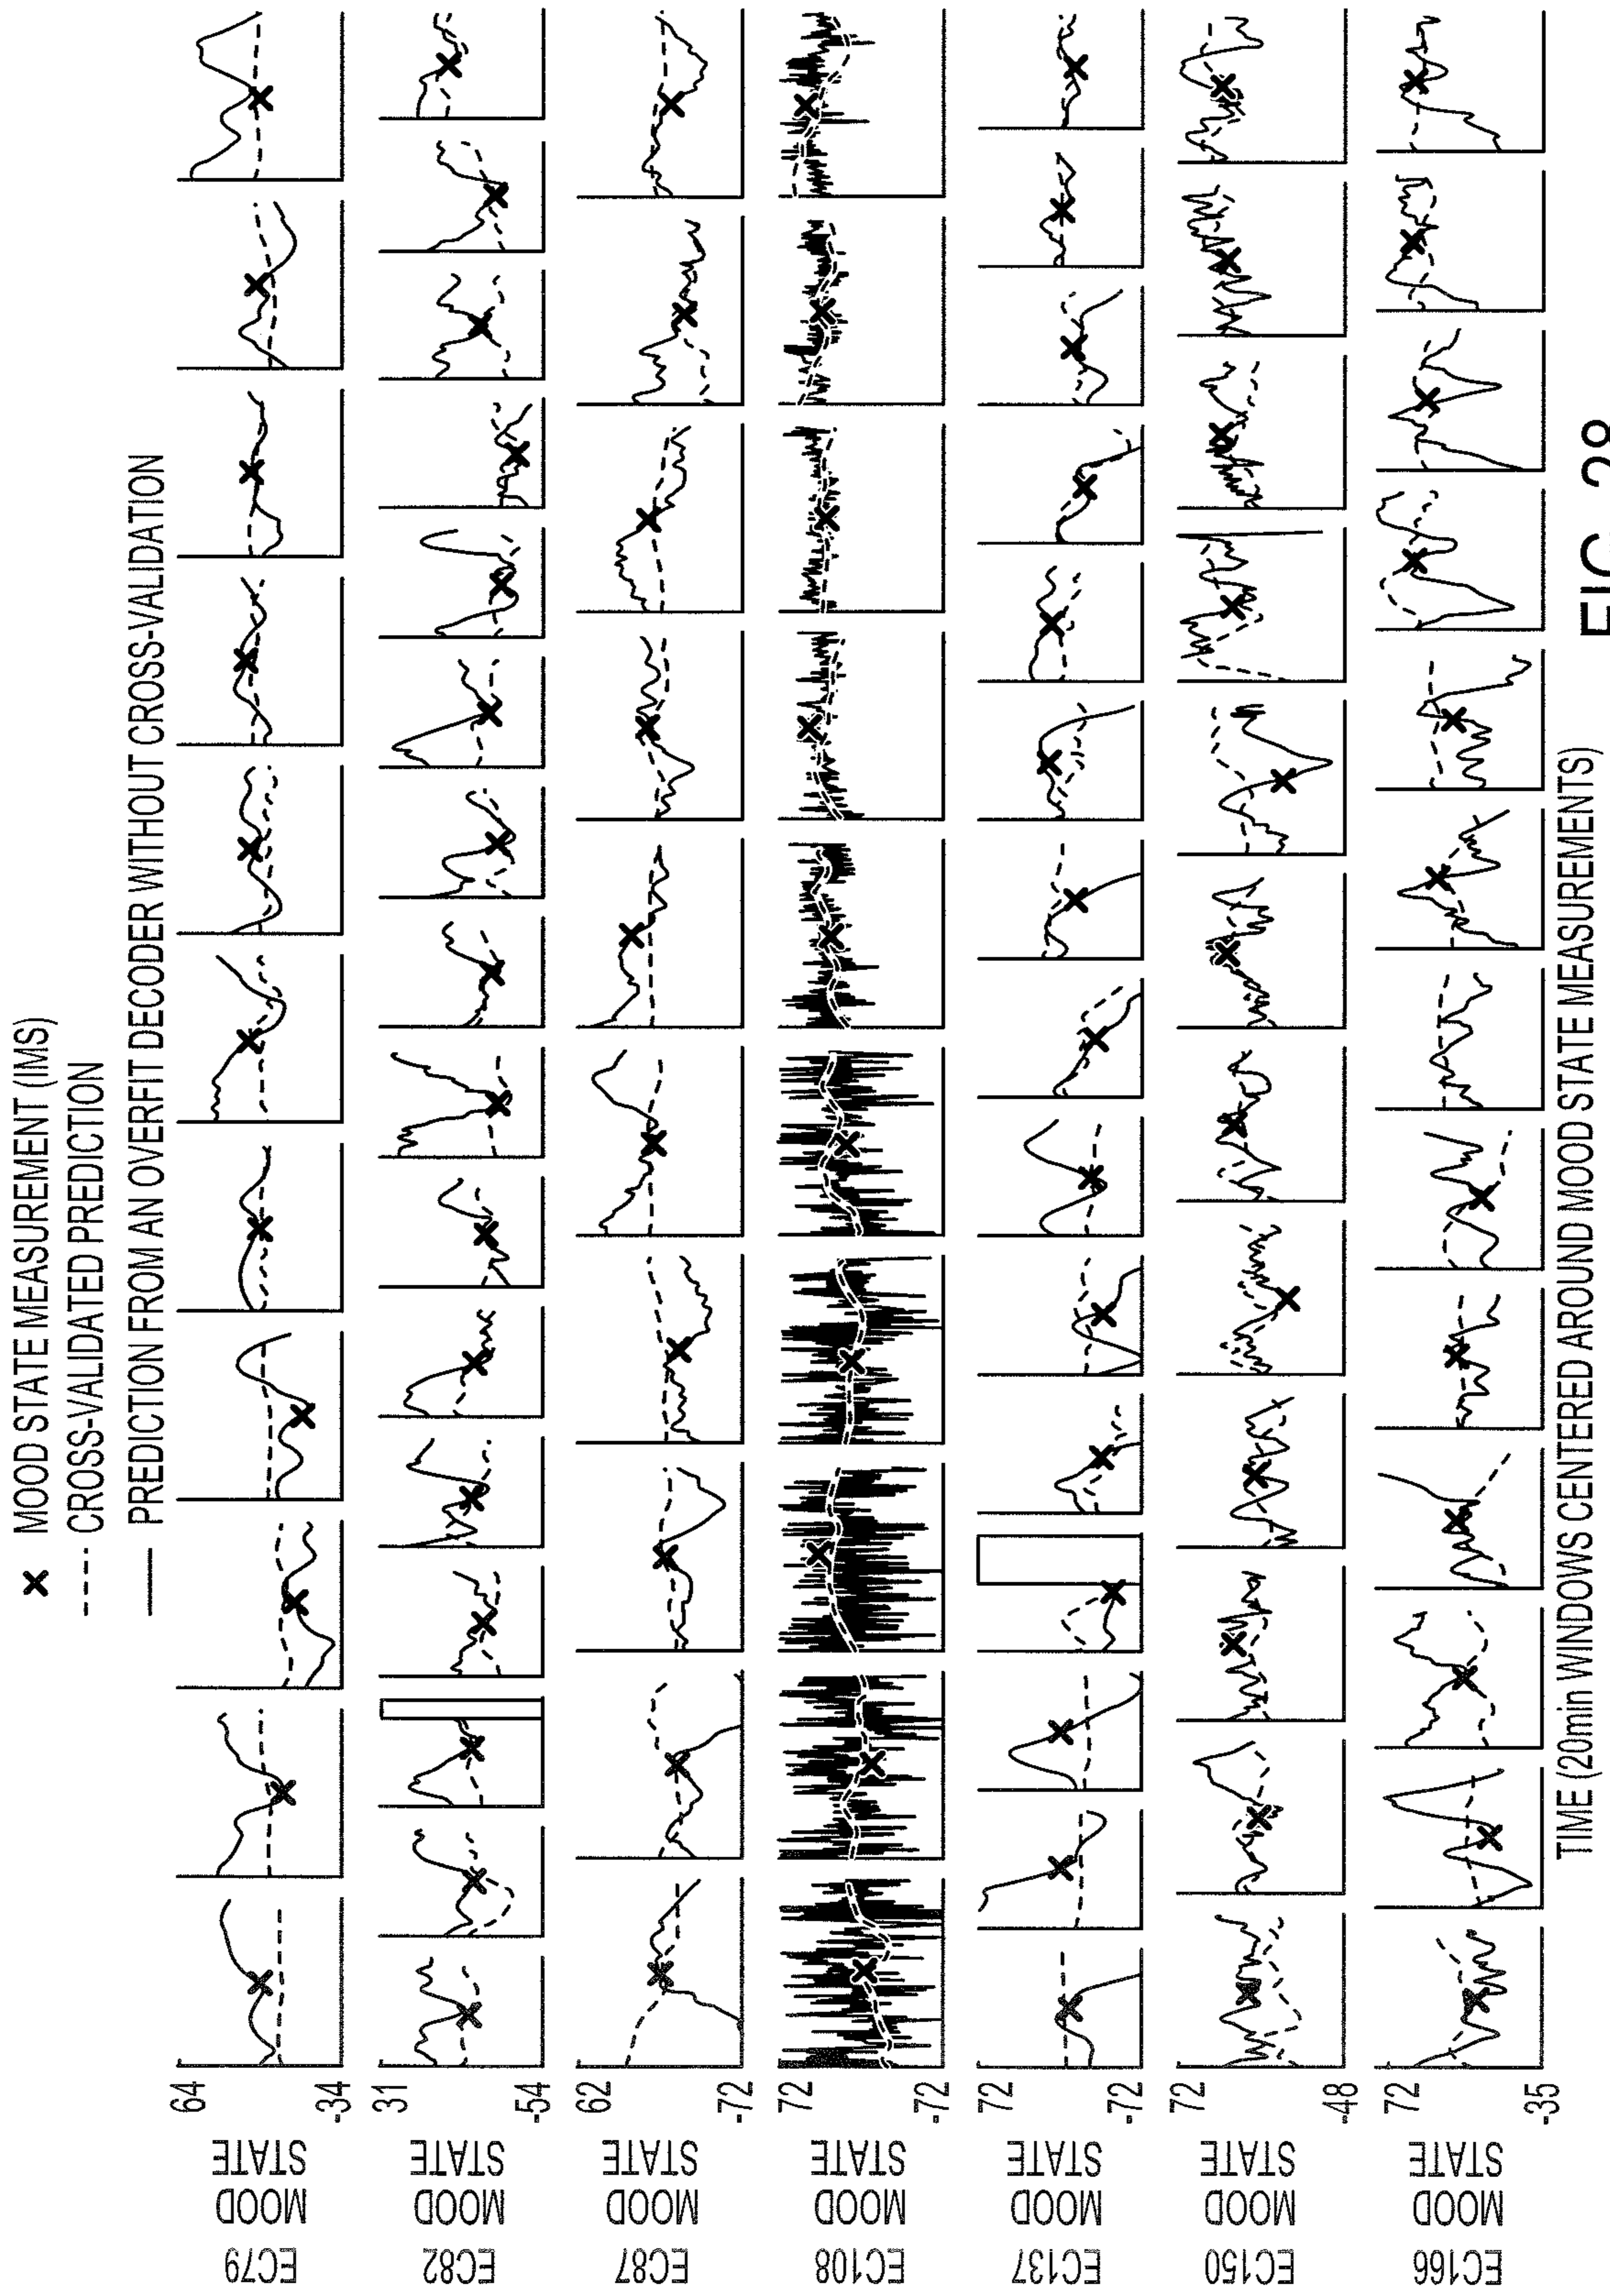 × MOOD STATE MEASUREMENT (IMS)
--- CROSS-VALIDATED PREDICTION
— PREDICTION FROM AN OVERFIT DECODER WITHOUT CROSS-VALIDATION
EC79
MOOD
STATE
64
-34
EC82
MOOD
STATE
31
-54
EC87
MOOD
STATE
62
-72
EC108
MOOD
STATE
72
-72
EC137
MOOD
STATE
72
-72
EC150
MOOD
STATE
72
-48
EC166
MOOD
STATE
72
-35
TIME (20min WINDOWS CENTERED AROUND MOOD STATE MEASUREMENTS)
FIG. 28